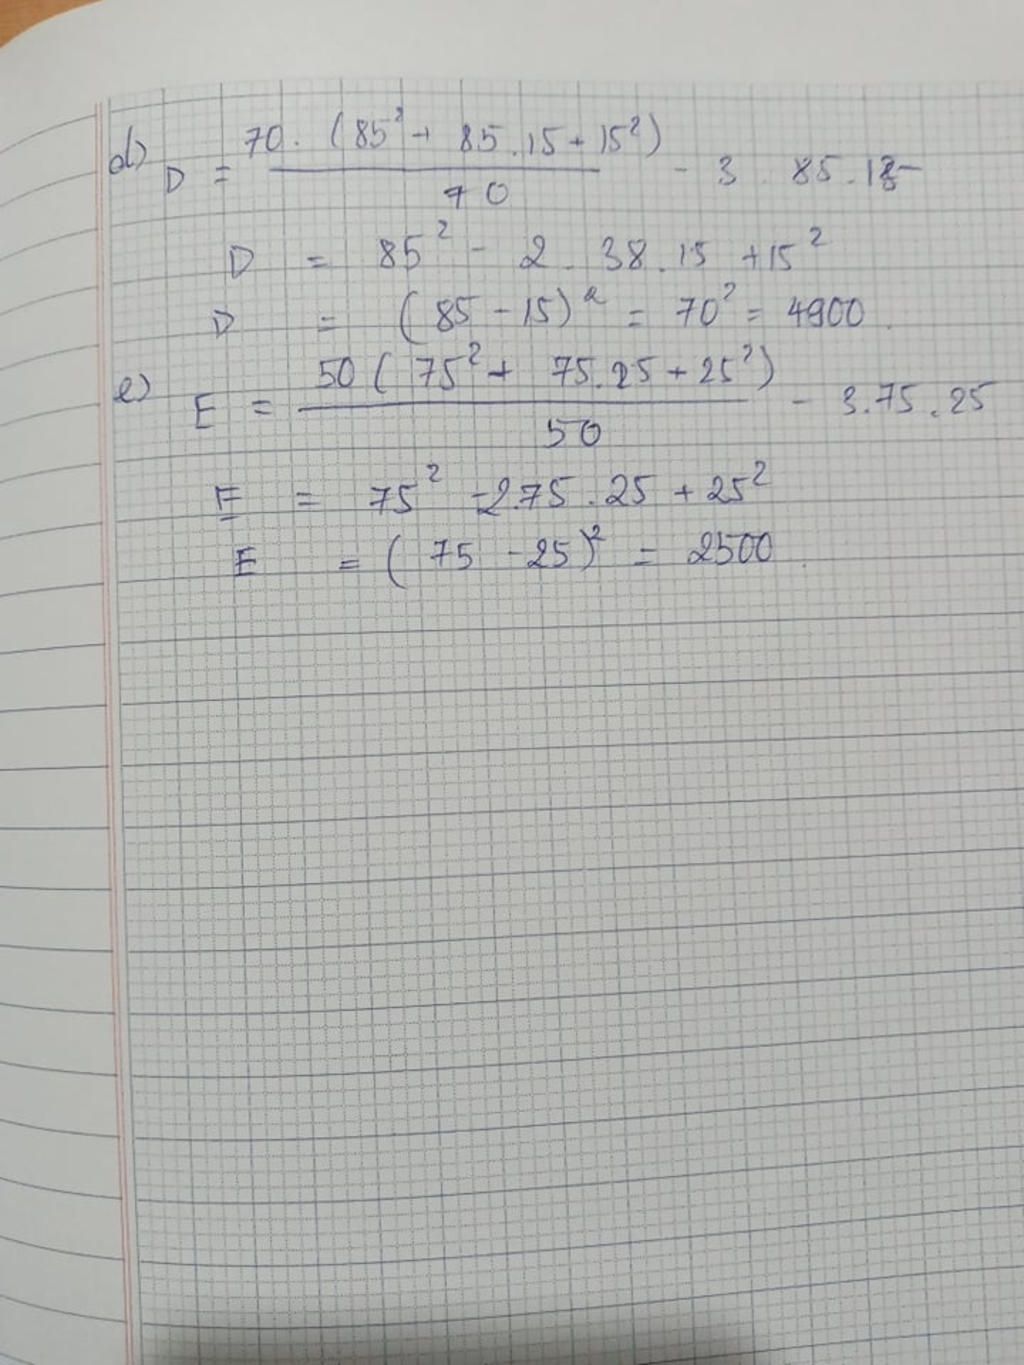 d) D = \frac{70 . (85^2 + 85 . 15 + 15^2)}{70} - 3 . 85 . 15
D = 85^2 - 2 . 38 . 15 + 15^2
D = (85 - 15)^2 = 70^2 = 4900
e) E = \frac{50 ( 75^2 + 75 . 25 + 25^2 )}{50} - 3 . 75 . 25
E = 75^2 - 2 . 75 . 25 + 25^2
E = ( 75 - 25 )^2 = 2500